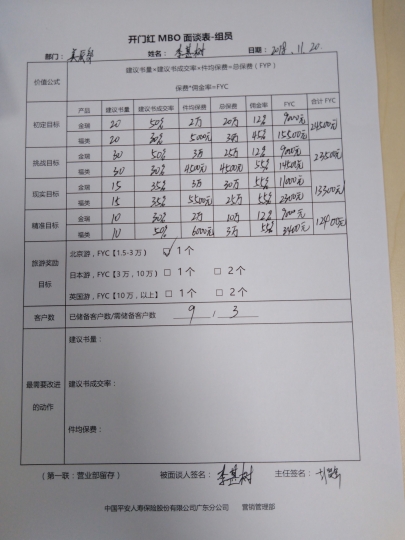 开门红 MBO 面谈表-组员
部门： 姓名： 李其树 日期： 2018.11.20
价值公式 建议书量*建议书成交率*件均保费=总保费（FYP）
保费*佣金率=FYC
产品 建议书量 建议书成交率 件均保费 总保费 佣金率 FYC 合计 FYC
初定目标 金瑞 20 50% 2万 20万 12% 9000元 24500元
福类 20 30% 5000元 3万 45% 15500元
挑战目标 金瑞 30 50% 3万 25万 12% 9000元 23500元
福类 30 30% 4500元 4500元 55% 14500元
现实目标 金瑞 15 35% 3万 30万 55% 11000元 13300元
福类 15 35% 5500元 25万 55% 2300元
精准目标 金瑞 10 30% 2万 10万 12% 9000元 12400元
福类 10 50% 6000元 3万 55% 3400元
旅游奖励目标 北京游，FYC【1.5-3 万】 ☑ 1 个
日本游，FYC【3 万，10 万） □ 1 个 □ 2 个
英国游，FYC【10 万，以上】 □ 1 个 □ 2 个
客户数 已储备客户数/需储备客户数 9 / 3
最需要改进的动作 建议书量：
建议书成交率：
件均保费：
（第一联：营业部留存） 被面谈人签名： 李其树 主任签名：
中国平安人寿保险股份有限公司广东分公司 营销管理部